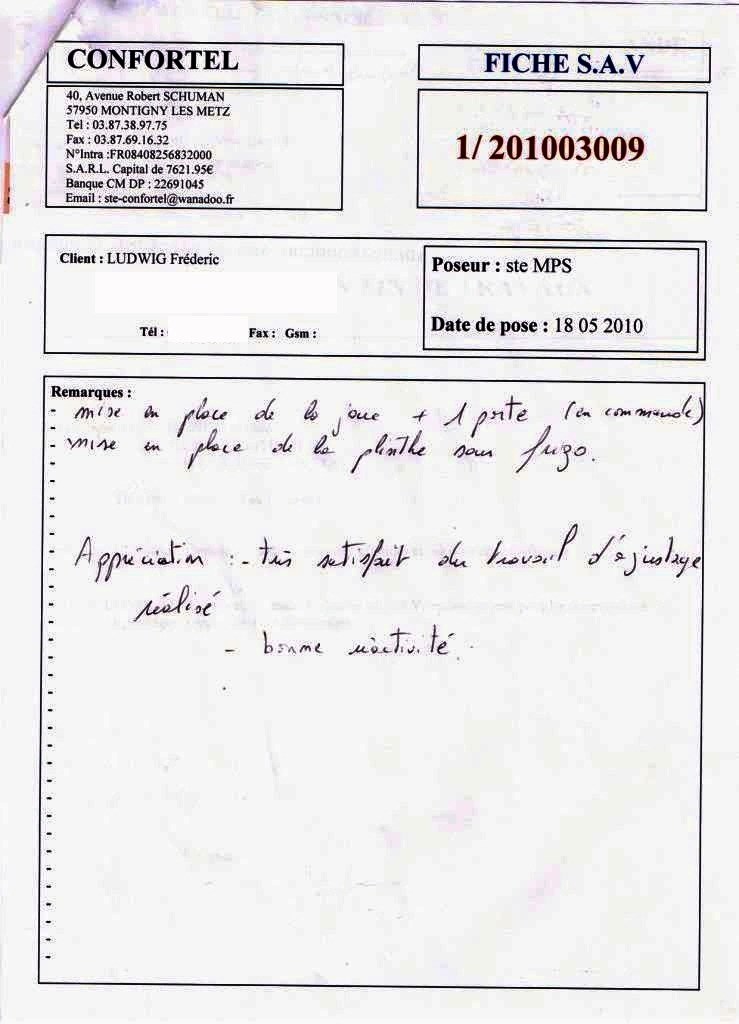 CONFORTEL
FICHE S.A.V
40, Avenue Robert SCHUMAN
57950 MONTIGNY LES METZ
Tel : 03.87.38.97.75
Fax : 03.87.69.16.32
N°Intra :FR08408256832000
S.A.R.L. Capital de 7621.95€
Banque CM DP : 22691045
Email : ste-confortel@wanadoo.fr
1/ 201003009
Client : LUDWIG Fréderic
Tél : Fax : Gsm :
Poseur : ste MPS
Date de pose : 18 05 2010
Remarques :
- mise en place de la joue + 1 porte (en commande)
- mise en place de la plinthe sous frigo.
Appréciation : - très satisfait du travail d'ajustage
réalisé
- bonne réactivité.